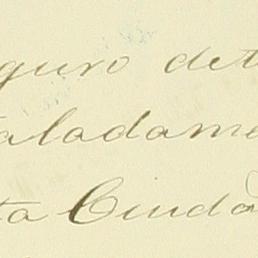 guro det
aladame
ta Ciuda